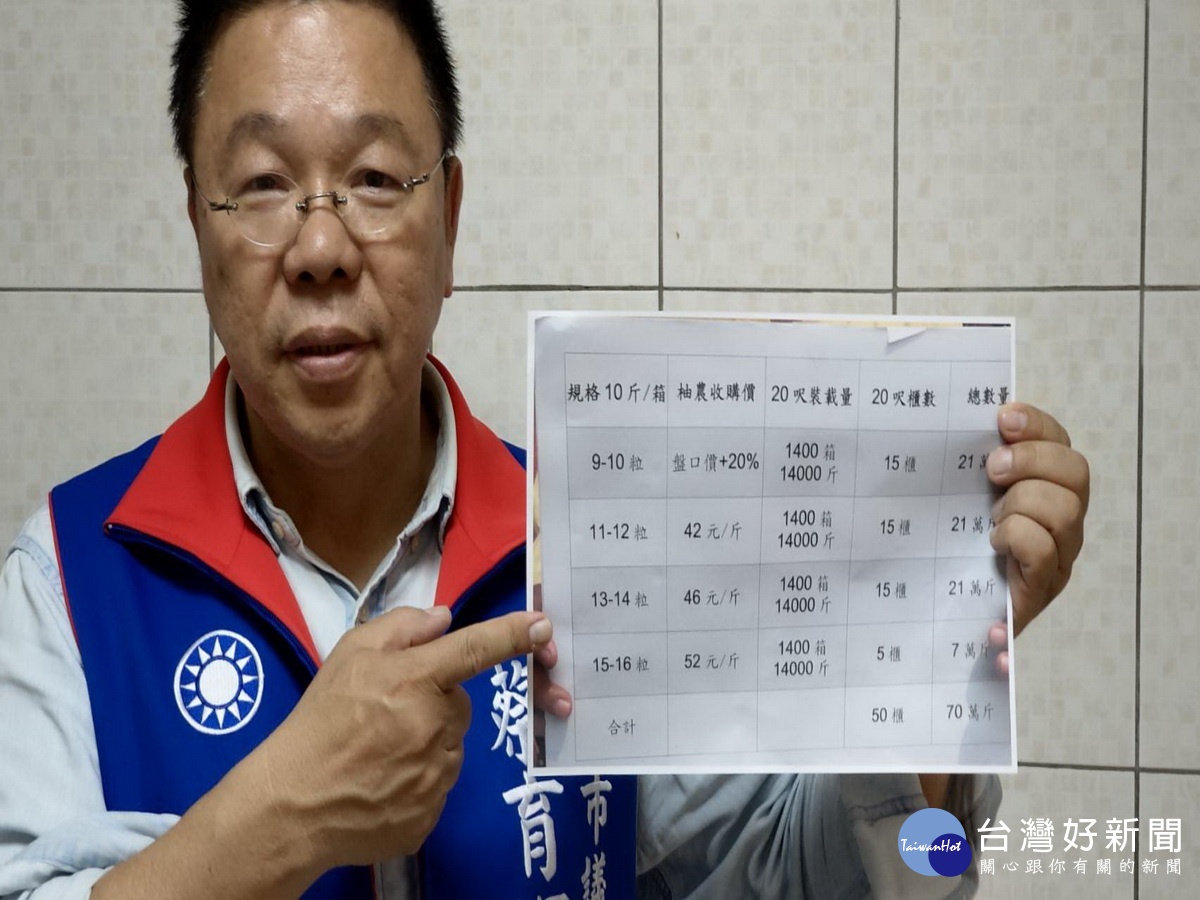 規格 10 斤/箱 柚農收購價 20 呎裝載量 20 呎櫃數 總數量
9-10 粒 盤口價+20% 1400 箱 14000 斤 15 櫃 21 萬
11-12 粒 42 元/斤 1400 箱 14000 斤 15 櫃 21 萬斤
13-14 粒 46 元/斤 1400 箱 14000 斤 15 櫃 21 萬斤
15-16 粒 52 元/斤 1400 箱 14000 斤 5 櫃 7 萬斤
合計 50 櫃 70 萬斤
蔡育
市議
TaiwanHot
台灣好新聞
關心跟你有關的新聞